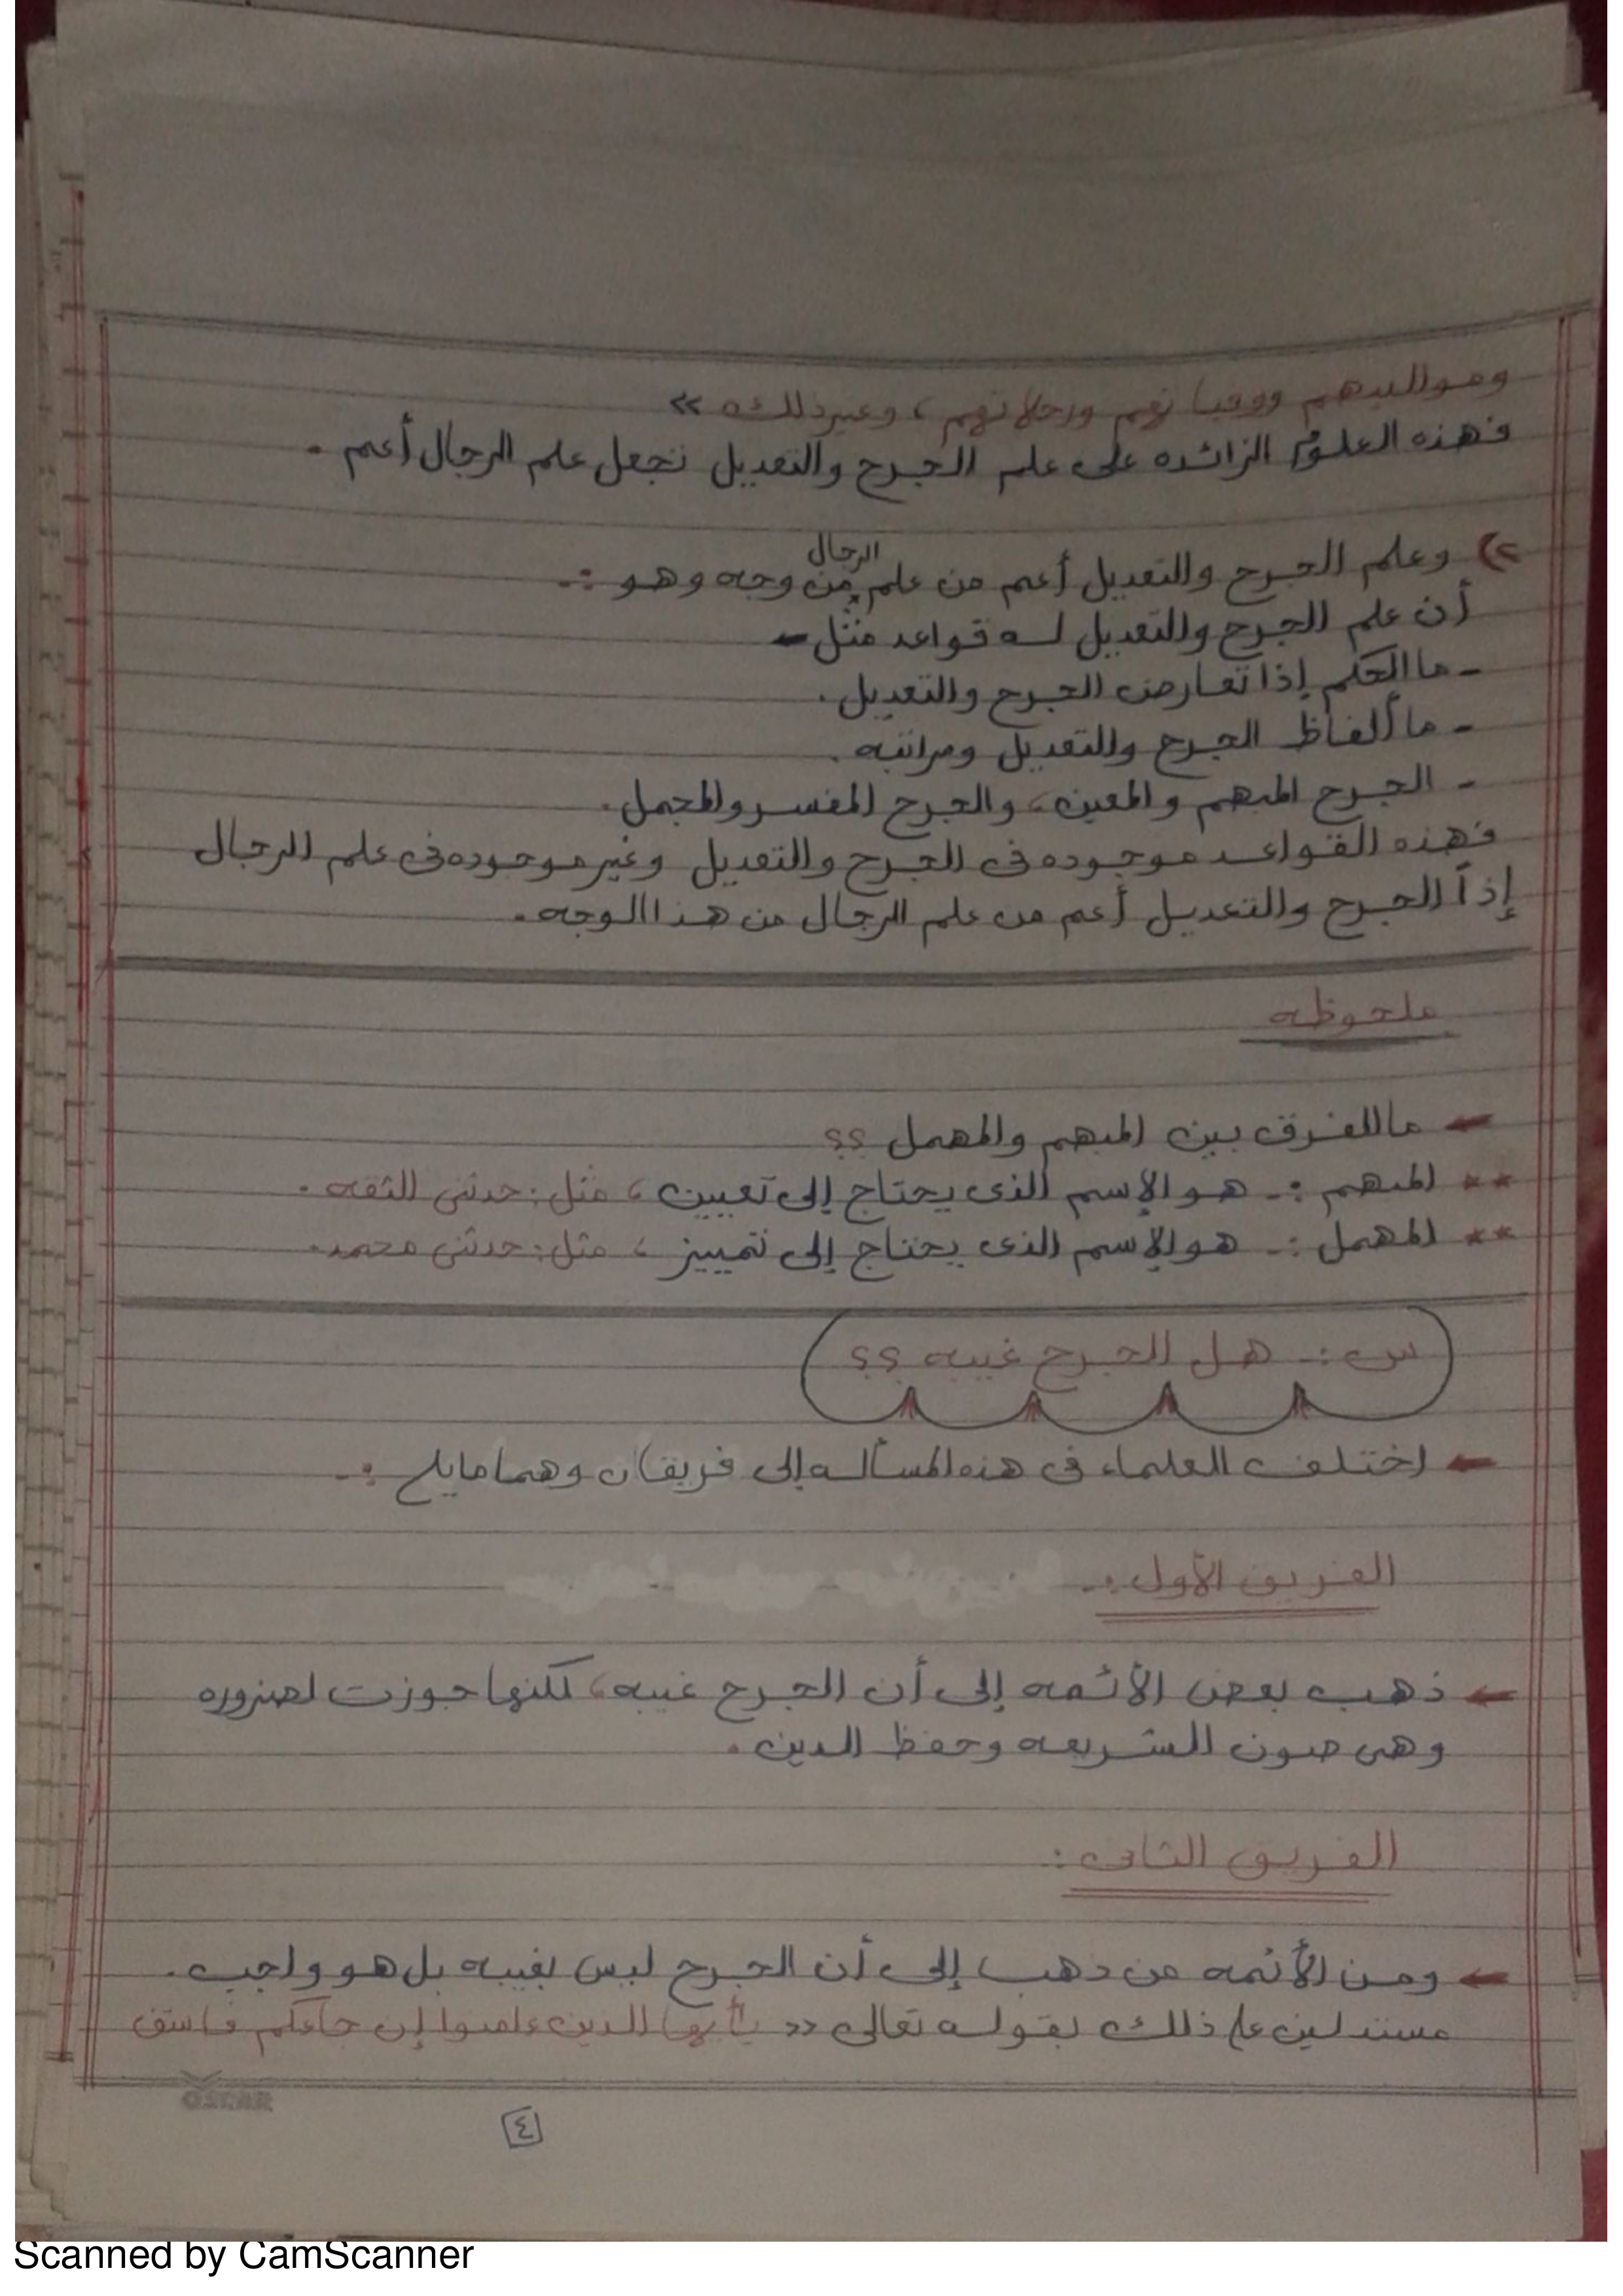 ومواليدهم ووفياتهم ورحلاتهم ، وغير ذلك »
فهذه العلوم الزائده على علم الجرح والتعديل تجعل علم الرجال أعم .
٢) وعلم الجرح والتعديل أعم من علم الرجال من وجه وهو :-
أن علم الجرح والتعديل له قواعد مثل -
- ما الحكم إذا تعارض الجرح والتعديل .
- ما ألفاظ الجرح والتعديل ومراتبه .
- الجرح المبهم والمعين ، والجرح المفسر والمجمل .
فهذه القواعد موجوده فى الجرح والتعديل وغير موجوده فى علم الرجال
إذاً الجرح والتعديل أعم من علم الرجال من هذا الوجه .
ملحوظه
← ما الفرق بين المبهم والمهمل ؟؟
** المبهم :- هو الإسم الذى يحتاج إلى تعيين ، مثل : حدثنى الثقه .
** المهمل :- هو الإسم الذى يحتاج إلى تمييز ، مثل : حدثنى محمد .
س :- هل الجرح غيبه ؟؟
← اختلف العلماء فى هذه المسأله إلى فريقان وهما مايلى :-
الفريق الأول :-
← ذهب بعض الأئمه إلى أن الجرح غيبه ، لكنها جوزت لضروره
وهى صون الشريعه وحفظ الدين .
الفريق الثانى :
← ومن الأئمه من ذهب إلى أن الجرح ليس بغيبه بل هو واجب .
مستدلين على ذلك بقوله تعالى « يأيها الذين ءامنوا إن جاءكم فاسق
OSCAR
٤
Scanned by CamScanner